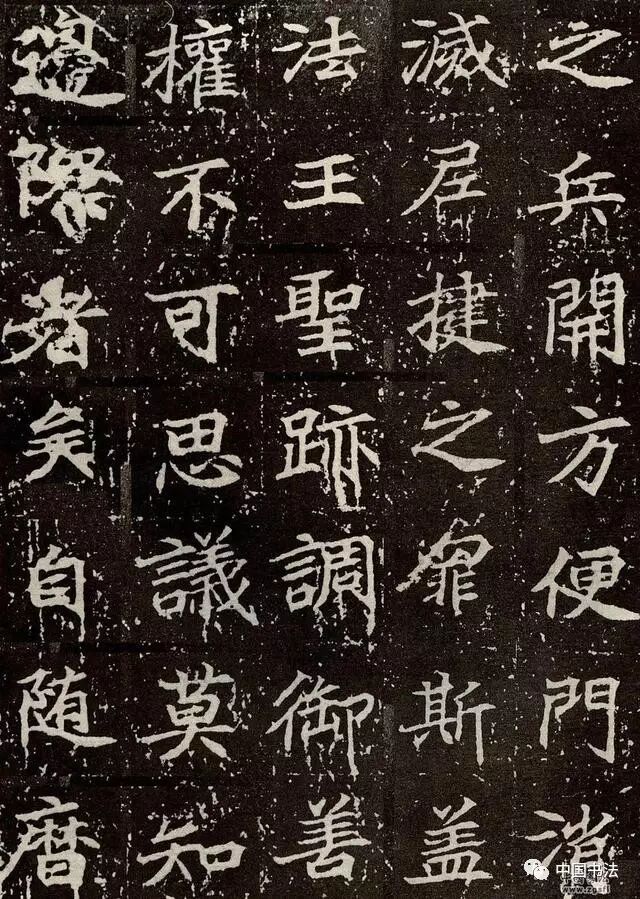 之兵開方便門消
滅尼揵之罪斯盖
法王聖跡調御善
權不可思議莫知
邊際者矣自随暦
中国书法